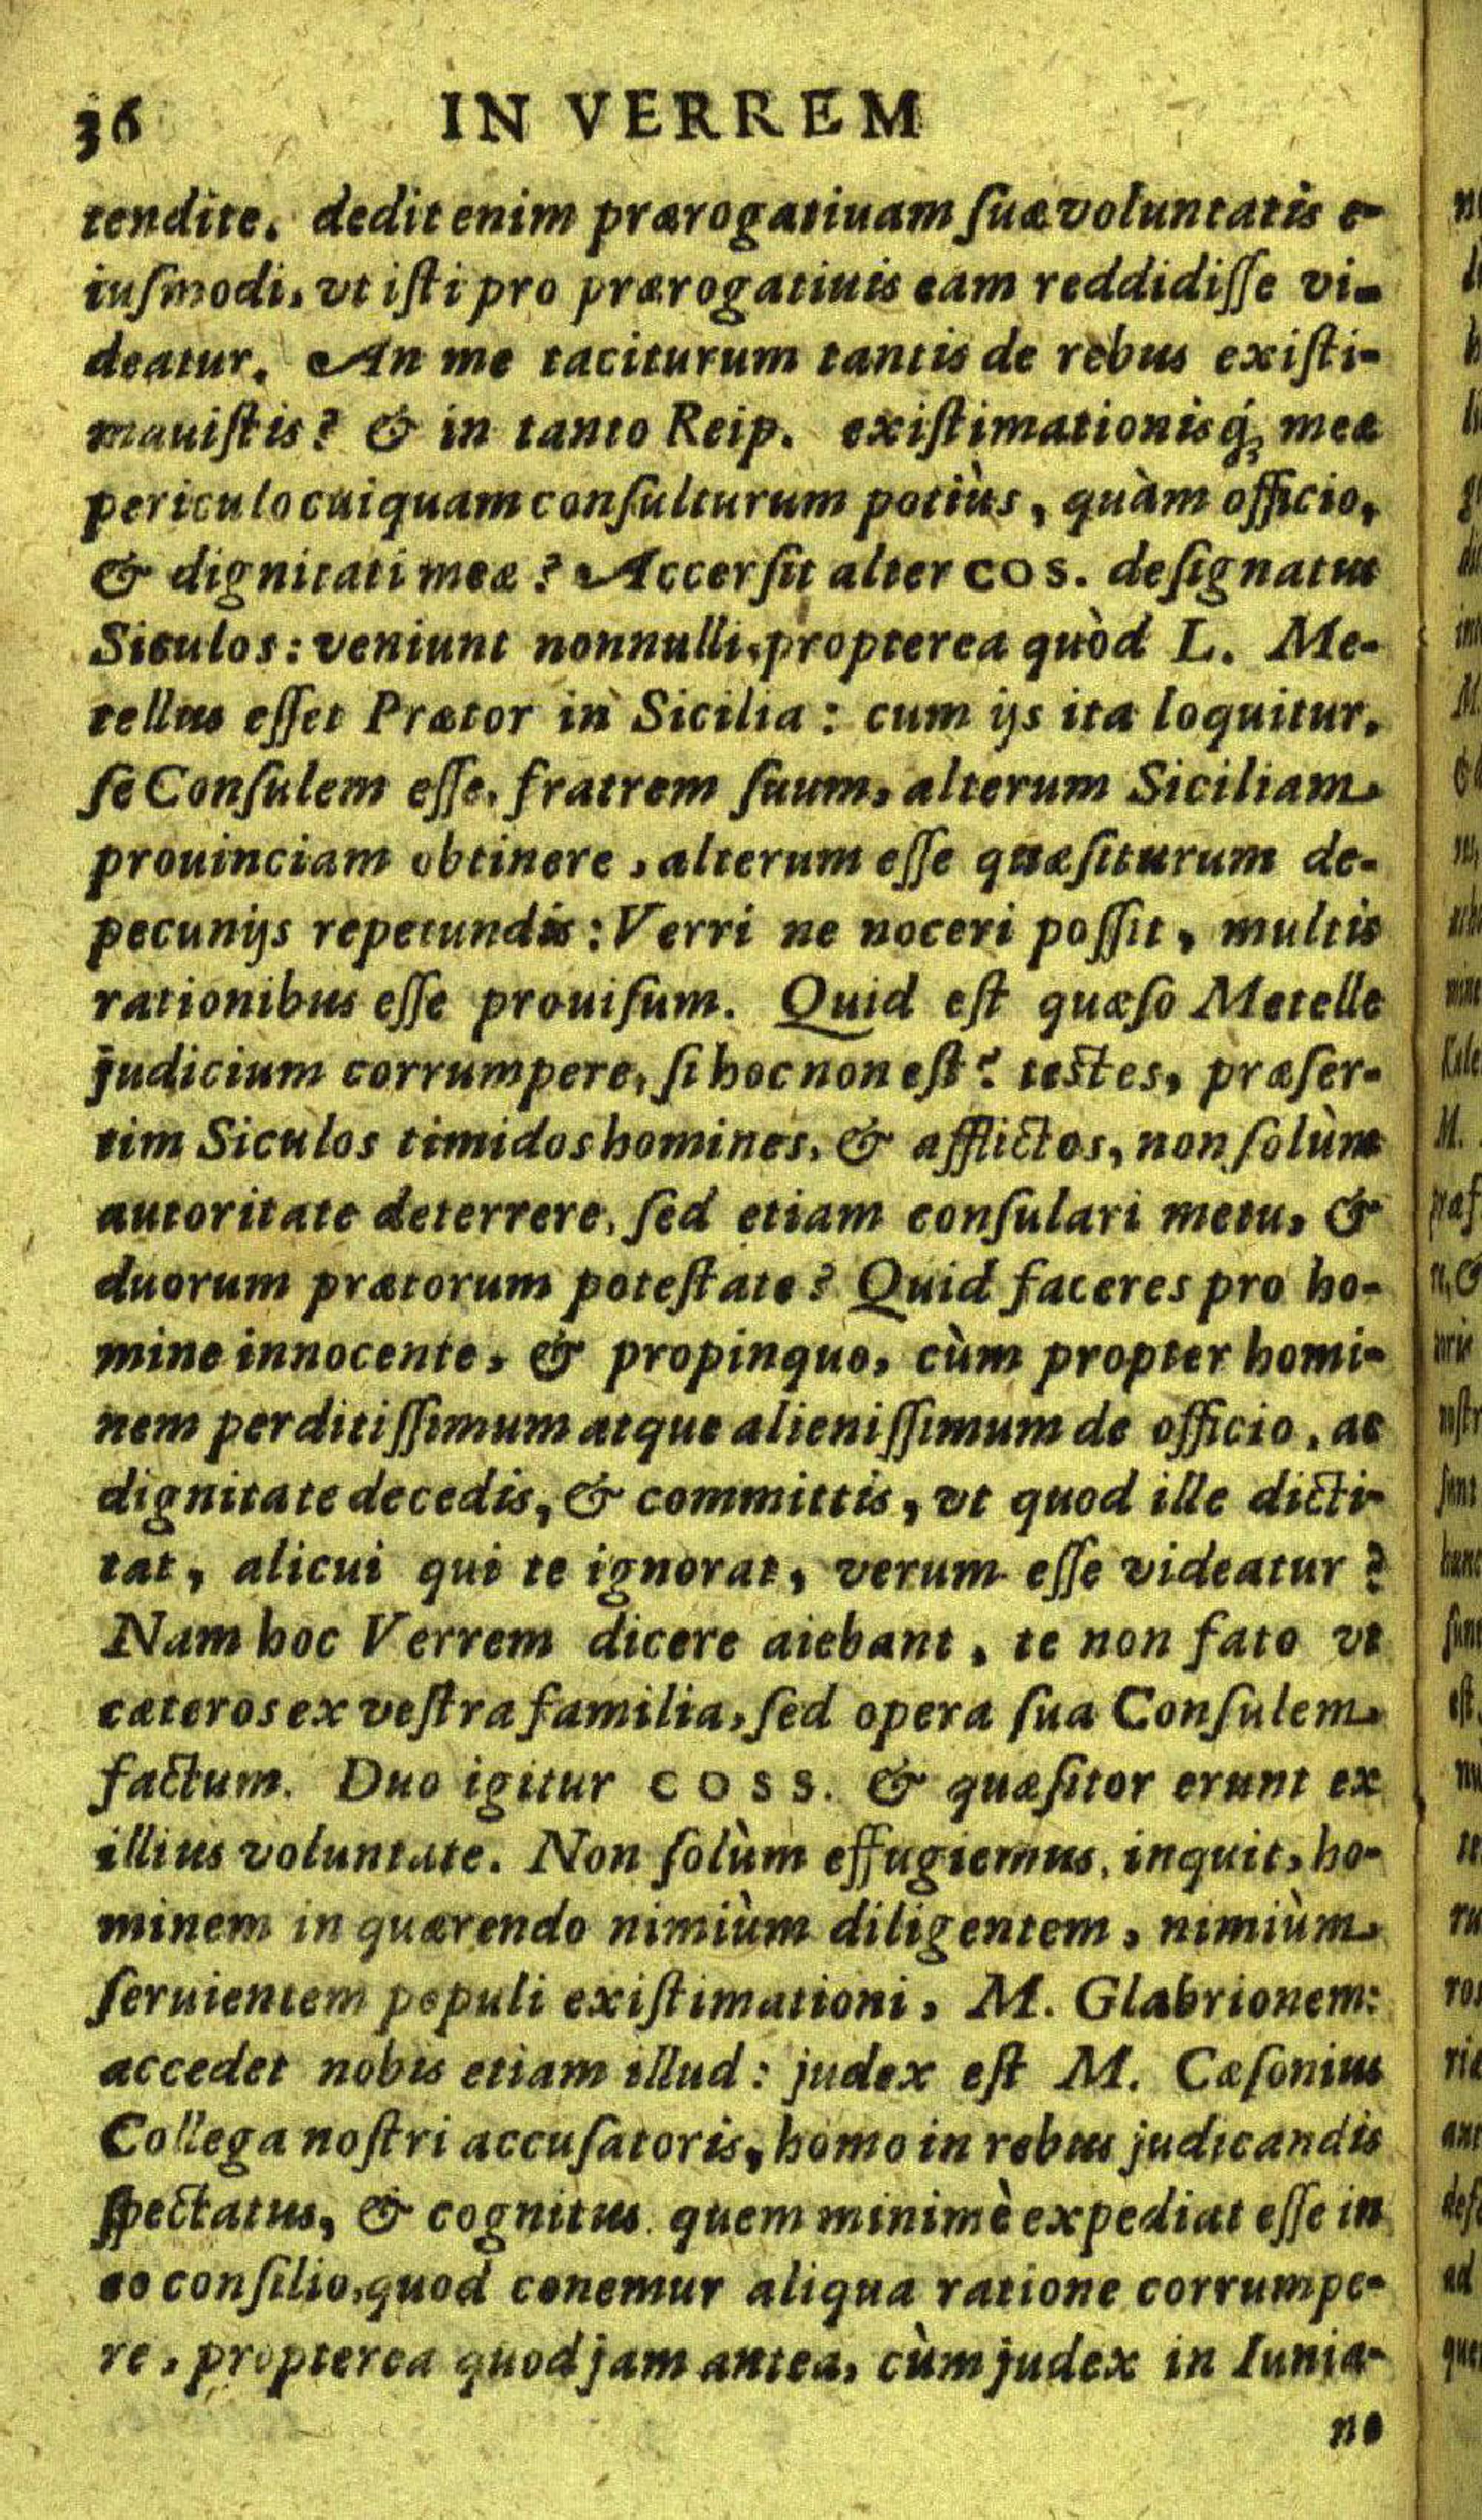 36 IN VERREM
tendite. dedit enim prærogatiuam ſuæ voluntatis e-
iuſmodi, vt iſti pro prærogatiuis eam reddidiſſe vi-
deatur. An me taciturum tantis de rebus exiſti-
mauiſtis? & in tanto Reip. exiſtimationisq́; meæ
periculo cuiquam conſulturum potiùs, quàm officio,
& dignitati meæ? Accerſit alter COS. deſignatus
Siculos: veniunt nonnulli, propterea quòd L. Me-
tellus eſſet Prætor in Sicilia: cum ijs ita loquitur,
ſe Conſulem eſſe, fratrem ſuum, alterum Siciliam
prouinciam obtinere, alterum eſſe quæſiturum de
pecunijs repetundis: Verri ne noceri poſſit, multis
rationibus eſſe prouiſum. Quid eſt quæſo Metelle
judicium corrumpere, ſi hoc non eſt? teſtes, præſer-
tim Siculos timidos homines, & afflictos, non ſolùm
autoritate deterrere, ſed etiam conſulari metu, &
duorum prætorum poteſtate? Quid faceres pro ho-
mine innocente, & propinquo, cùm propter homi-
nem perditiſſimum atque alieniſſimum de officio, ac
dignitate decedis, & committis, vt quod ille dicti-
tat, alicui qui te ignorat, verum eſſe videatur?
Nam hoc Verrem dicere aiebant, te non fato vt
cæteros ex veſtra familia, ſed opera ſua Conſulem
factum. Duo igitur COSS. & quæſitor erunt ex
illius voluntate. Non ſolùm effugiemus, inquit, ho-
minem in quærendo nimiùm diligentem, nimiùm
ſeruientem populi exiſtimationi, M. Glabrionem:
accedet nobis etiam illud: judex eſt M. Cæſonius
Collega noſtri accuſatoris, homo in rebus judicandis
ſpectatus, & cognitus. quem minimè expediat eſſe in
eo conſilio, quod conemur aliqua ratione corrumpe-
re, propterea quod jam antea, cùm judex in Iunia-
no